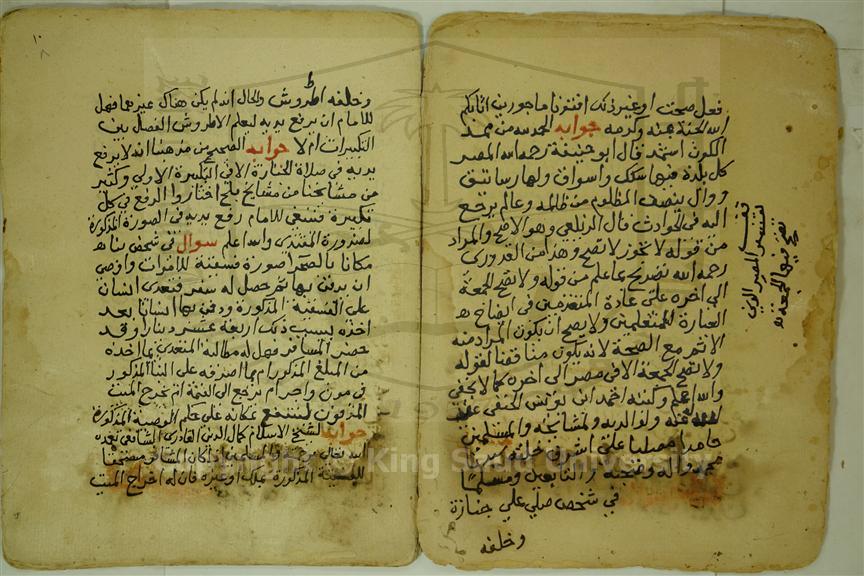 فعل صحت او غير ذلك افتونا ماجورين اثابكم
الله الجنة بمنه وكرمه جوابه الحمد لله من ممد
الكون استمد قال ابو حنيفة رحمه الله المصر
كل بلدة فيها سكك واسواق ولها رساتيق
ووال ينصف المظلوم من ظالمه وعالم يرجع
اليه في الحوادث قال الزيلعي وهو الاصح والمراد
من قوله لا تجوز لا تصح وهذا من القدوري
رحمه الله تصريح بما علم من قوله ولا تصح الجمعة
الى اخره على عادة المتقدمين في ايضاح
العبارة للمتعلمين ولا يصح ان يكون المراد منه
الاثم مع الصحة لانه يكون مناقضا لقوله
ولا تصح الجمعة الا في مصر الى اخره كما لا يخفى
والله اعلم وكتبه احمد ابن يونس الحنفي
ولوالديه ولمشايخه والمسلمين
حامدا مصليا على اشرف خلقه
محمد واله وصحبه والتابعين ومسلما
في شخص صلي على جنازة
وخلفه
تفسير المصر الذي
تصح فيه الجمعة
وخلفه اطروش والحال انه لم يكن هناك غيرهما فهل
للامام ان يرفع يديه ليعلم الاطروش الفصل بين
التكبيرات ام لا جوابه الصحيح من مذهبنا انه لا يرفع
يديه في صلاة الجنازة الا في التكبيرة الاولى وكثير
من مشائخنا من مشايخ بلخ اختاروا الرفع في كل
تكبيرة فينبغي للامام رفع يديه في الصورة المذكورة
لضرورة المقتدي والله اعلم سوال في شخص بناه
مكانا بالصحرا صورة فسقية للاموات واوصى
ان يدفن بها ثم حصل له سفر فتعدى انسان
على الفسقية المذكورة ودفن بها انسانا بعد
اخذه بسبب ذلك اربعة عشر دينارا وقد
حضر المسافر فهل له مطالبة المتعدي بما اخذه
من المبلغ المذكور ام بما اصرفه على البنا المذكور
في مون واجر ام يرجع الى القيمة ام يخرج الميت
المدفون لينتفع بمكانه على حكم الوصية المذكورة
جواب الشيخ الاسلام كمال الدين القادري الشافعي تغمده
الله تعالى اذا كان المسافر مستحقا
للفسقية المذكورة بملك او غيره فان له اخراج الميت